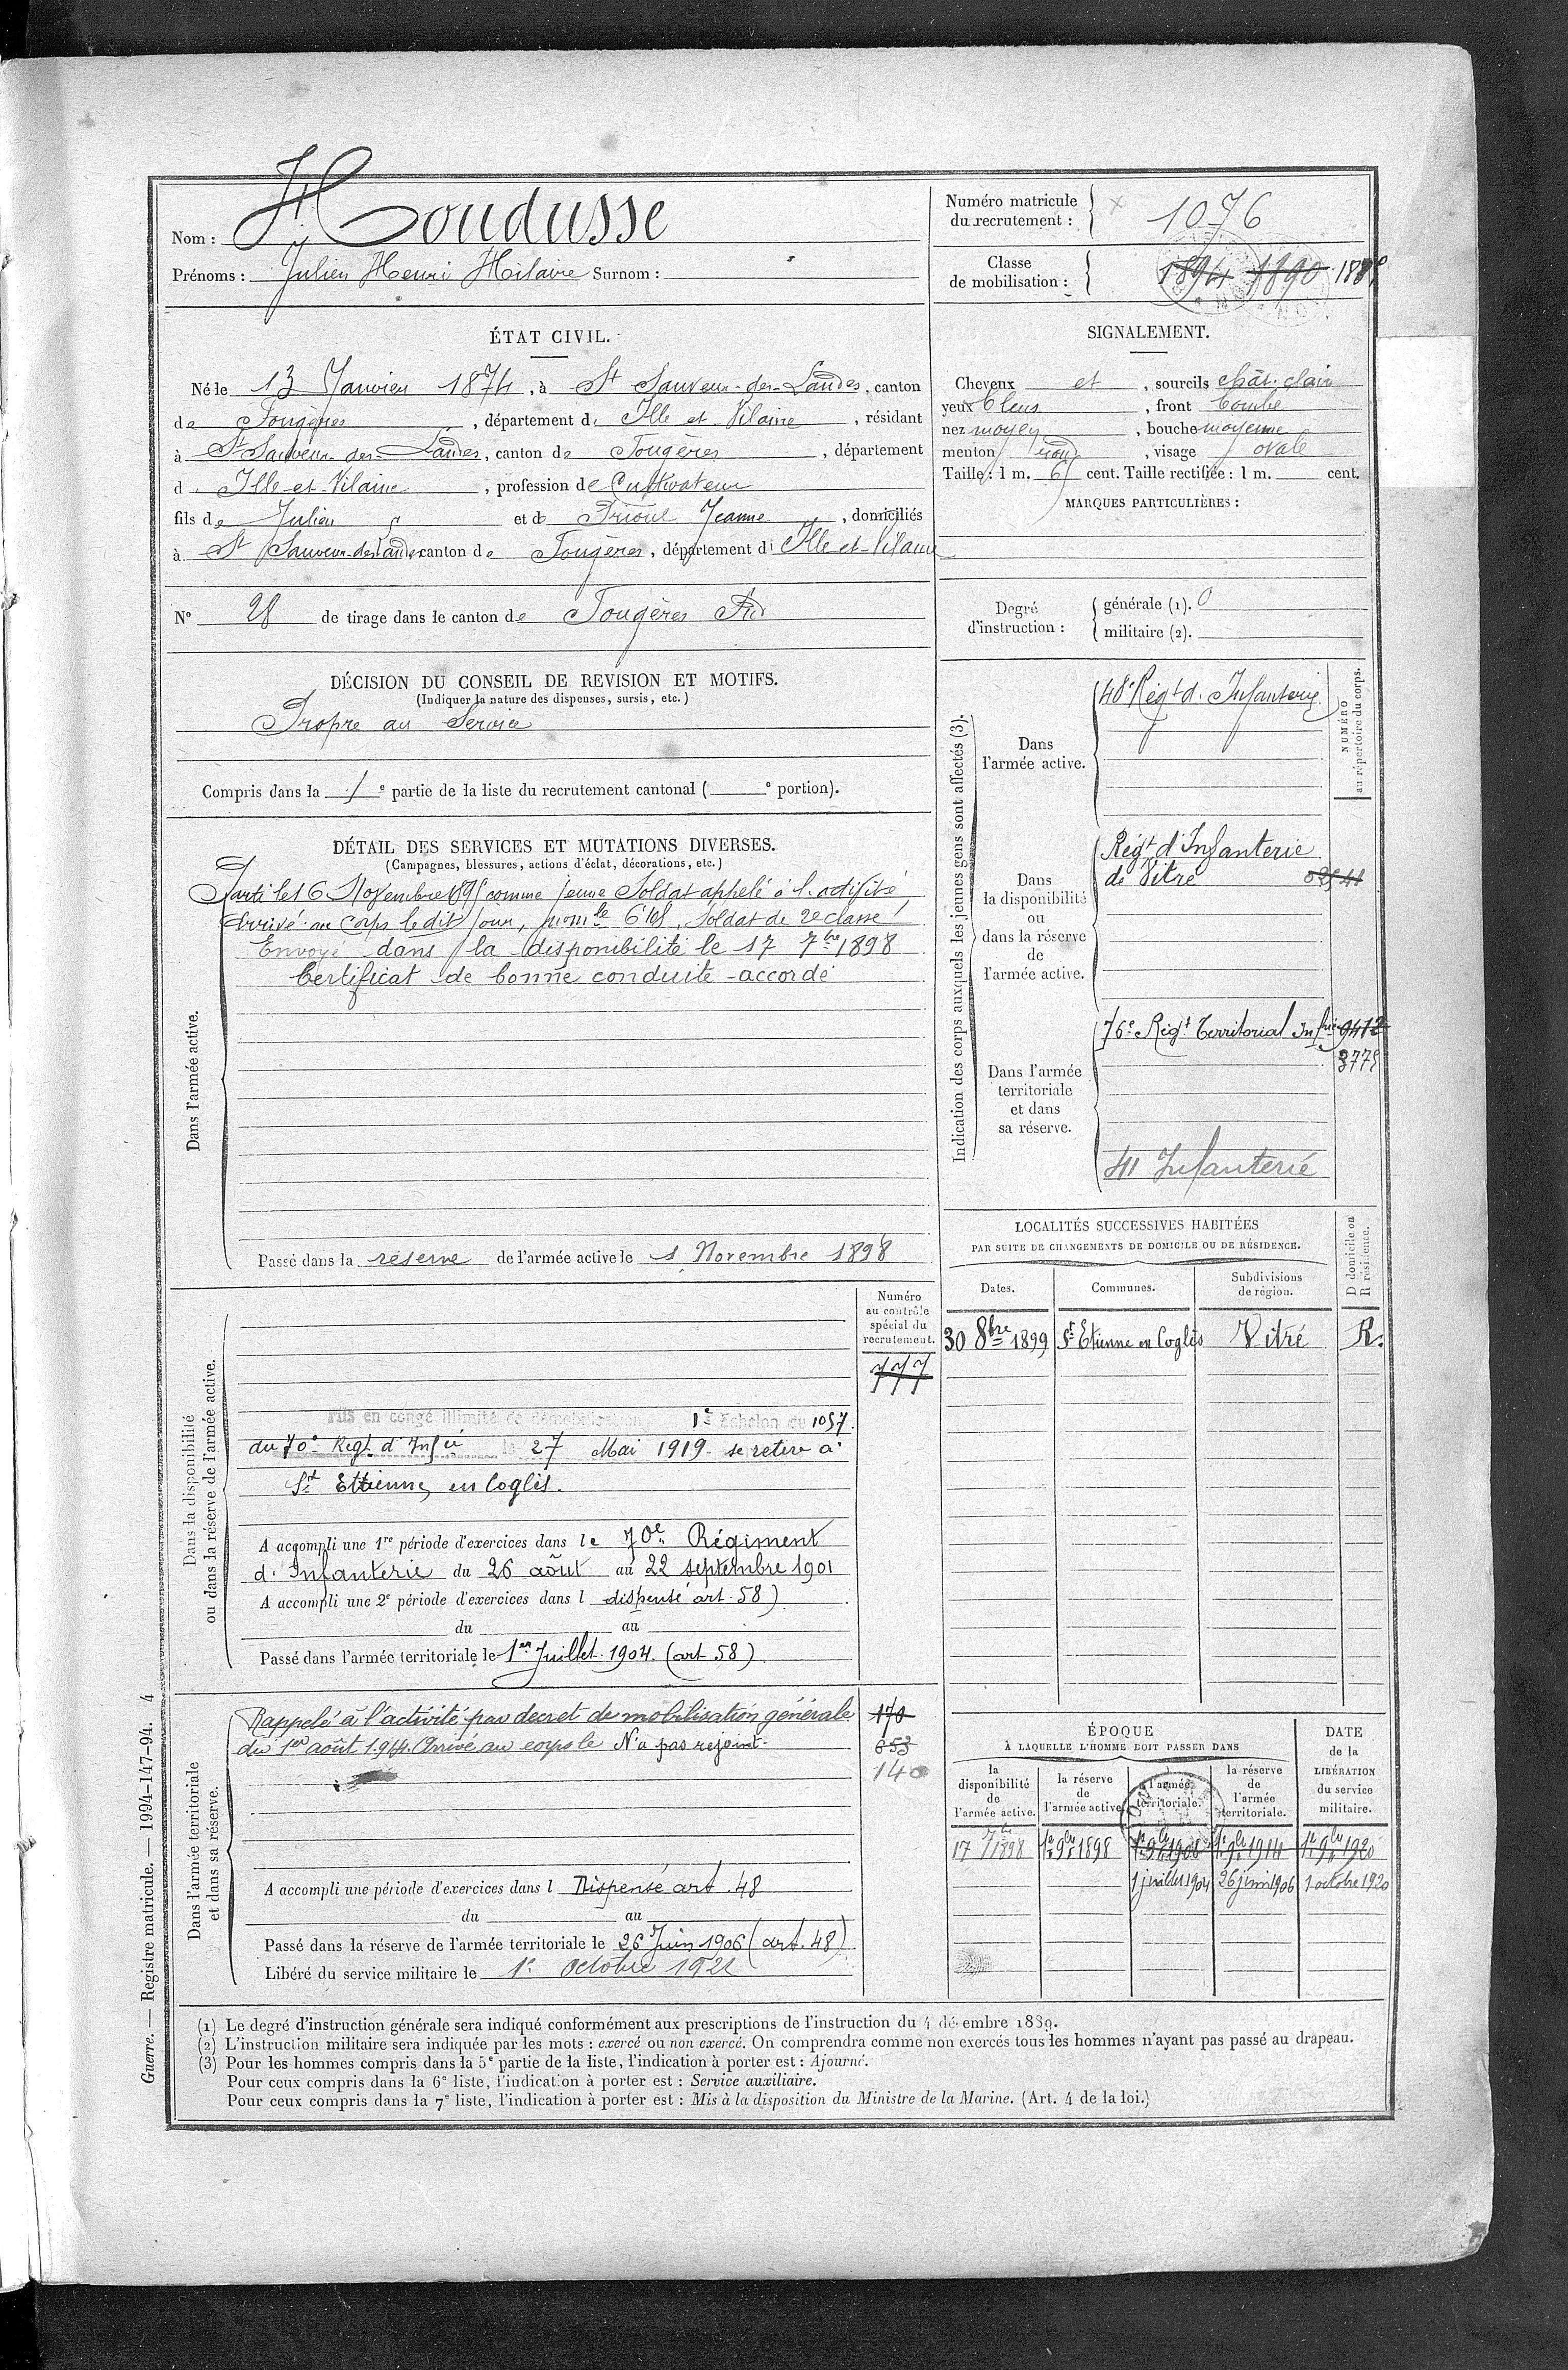 Nom : Houdusse
Prénoms : Julien Henri Hilaire Surnom :
Numéro matricule du recrutement : 1076
Classe de mobilisation : 1894 1890
ÉTAT CIVIL.
Né le 13 Janvier 1874, à St Sauveur-des-Landes, canton
de Fougères, département d' Ille et Vilaine, résidant
à St Sauveur-des-Landes, canton de Fougères, département
d' Ille-et-Vilaine, profession de Cultivateur
fils de Julien et de Prioul Jeanne, domiciliés
à St Sauveur-des-Landes canton de Fougères, département d' Ille-et-Vilaine
N° 28 de tirage dans le canton de Fougères Sud
SIGNALEMENT.
Cheveux et, sourcils chât. clair
yeux bleus, front bombé
nez moyen, bouche moyenne
menton rond, visage ovale
Taille : 1 m. 61 cent. Taille rectifiée : 1 m. cent.
MARQUES PARTICULIÈRES :
Degré d'instruction : générale (1). 0
militaire (2).
DÉCISION DU CONSEIL DE REVISION ET MOTIFS.
(Indiquer la nature des dispenses, sursis, etc.)
Propre au Service
Compris dans la 1e partie de la liste du recrutement cantonal ( e portion).
DÉTAIL DES SERVICES ET MUTATIONS DIVERSES.
(Campagnes, blessures, actions d'éclat, décorations, etc.)
Dans l'armée active.
Parti le 16 Novembre 1895 comme jeune Soldat appelé à l'activité
Arrivé au Corps ledit jour, Soldat de 2e classe
Envoyé dans la disponibilité le 17 7bre 1898
Certificat de bonne conduite accordé
Passé dans la réserve de l'armée active le 1 Novembre 1898
Indication des corps auxquels les jeunes gens sont affectés (3).
NUMÉRO au répertoire du corps.
Dans l'armée active.
48e Régt d' Infanterie
Dans la disponibilité ou dans la réserve de l'armée active.
Régt d'Infanterie
de Vitré
Dans l'armée territoriale et dans sa réserve.
76e Régt Territorial Infrie 9412
3775
41 Infanterie
LOCALITÉS SUCCESSIVES HABITÉES
PAR SUITE DE CHANGEMENTS DE DOMICILE OU DE RÉSIDENCE.
Dates. Communes. Subdivisions de région. D domicile ou R résidence.
30 8bre 1899 St Etienne en Coglès Vitré R.
Dans la disponibilité ou dans la réserve de l'armée active.
Numéro au contrôle spécial du recrutement.
777
Mis en congé illimité de démobilisation 1e Echelon du 1057
du 70e Regt d'Infie le 27 Mai 1919 se retire à
St Ettienne en Coglès.
A accompli une 1re période d'exercices dans le 70e Régiment
d' Infanterie du 26 août au 22 septembre 1901
A accompli une 2e période d'exercices dans l dispensé art. 58)
du au
Passé dans l'armée territoriale le 1er Juillet 1904. (art 58)
Dans l'armée territoriale et dans sa réserve.
Rappelé à l'activité par decret de mobilisation générale 170
du 1er août 1914. Arrivé au corps le N'a pas rejoint. 653
140
A accompli une période d'exercices dans l Dispensé art. 48
du au
Passé dans la réserve de l'armée territoriale le 26 Juin 1906 (art. 48)
Libéré du service militaire le 1e Octobre 1921
ÉPOQUE
À LAQUELLE L'HOMME DOIT PASSER DANS
DATE de la LIBÉRATION du service militaire.
la disponibilité de l'armée active. la réserve de l'armée active. l'armée territoriale. la réserve de l'armée territoriale.
17 7bre 1898 1er 9bre 1898 1er 9bre 1908 1er 9bre 1914 1er 9bre 1920
1 juillet 1904 26 juin 1906 1 octobre 1920
(1) Le degré d'instruction générale sera indiqué conformément aux prescriptions de l'instruction du 4 décembre 1889.
(2) L'instruction militaire sera indiquée par les mots : exercé ou non exercé. On comprendra comme non exercés tous les hommes n'ayant pas passé au drapeau.
(3) Pour les hommes compris dans la 5e partie de la liste, l'indication à porter est : Ajourné.
Pour ceux compris dans la 6e liste, l'indication à porter est : Service auxiliaire.
Pour ceux compris dans la 7e liste, l'indication à porter est : Mis à la disposition du Ministre de la Marine. (Art. 4 de la loi.)
Guerre. — Registre matricule. — 1994-147-94. 4